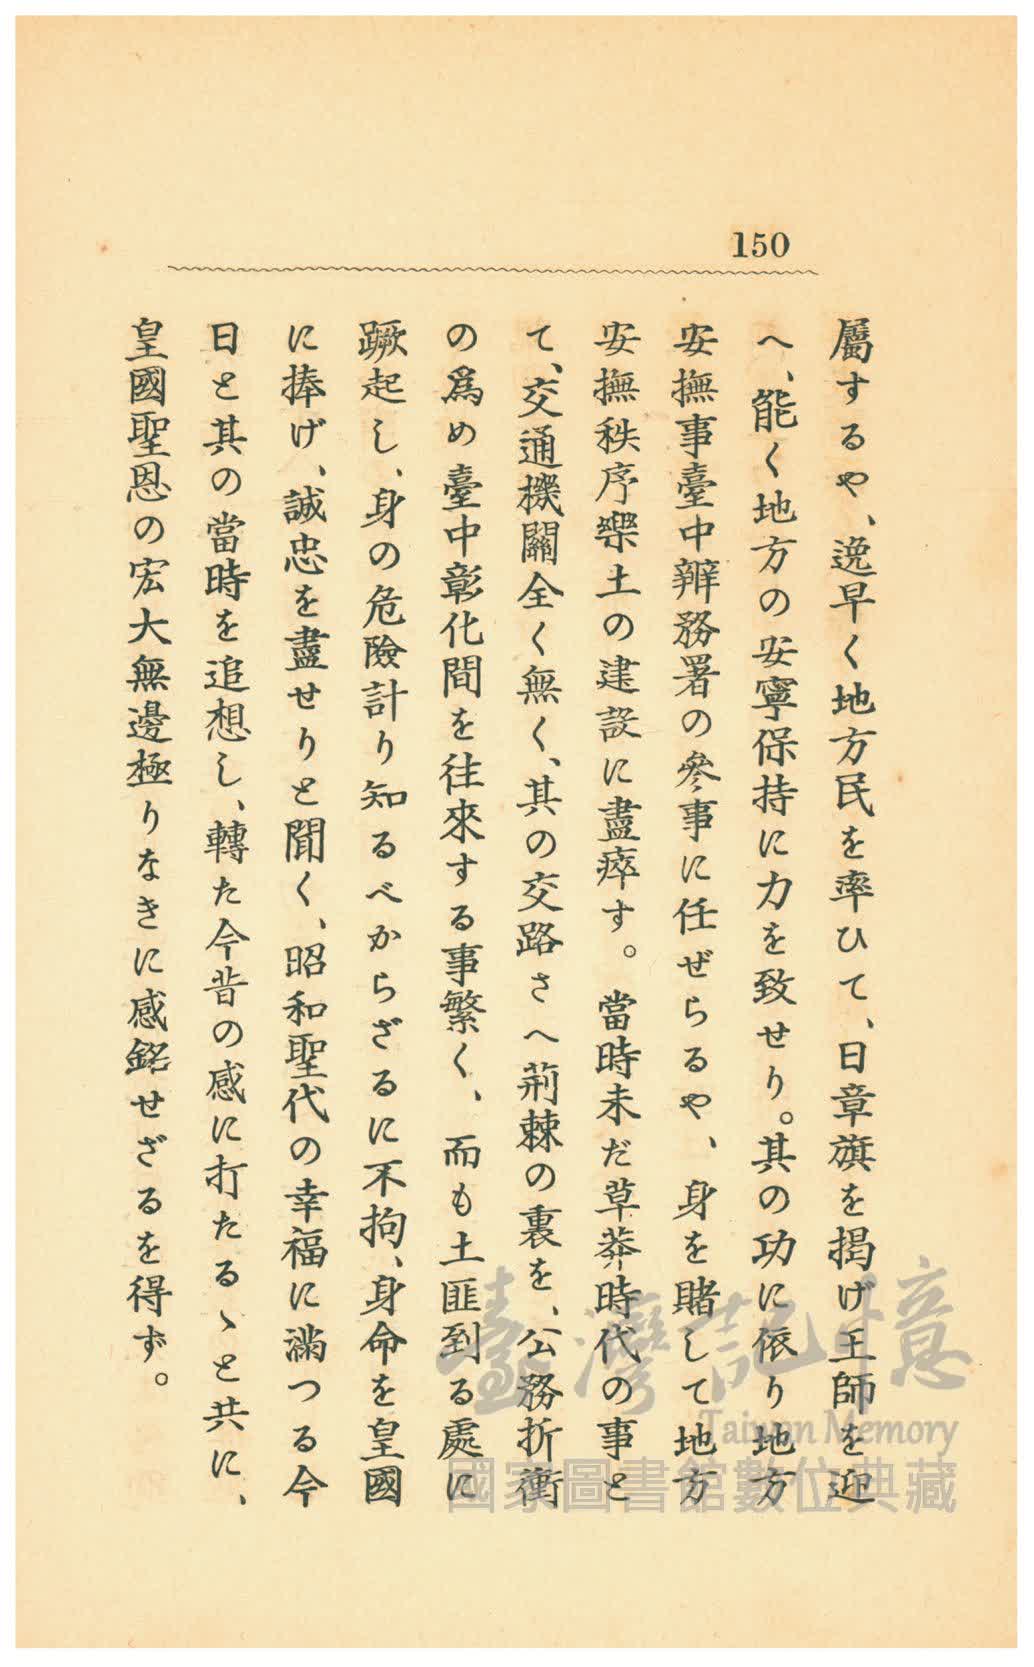 150
屬するや、逸早く地方民を率ひて、日章旗を揭げ王師を迎
へ、能く地方の安寧保持に力を致せり。其の功に依り地方
安撫事臺中辨務署の參事に任ぜらるや、身を賭して地方
安撫秩序樂土の建設に盡瘁す。當時未だ草莽時代の事と
て、交通機關全く無く、其の交路さへ荊棘の裏を、公務折衝
の爲め臺中彰化間を往來する事繁く、而も土匪到る處に
蹶起し、身の危險計り知るべからざるに不拘、身命を皇國
に捧げ、誠忠を盡せりと聞く、昭和聖代の幸福に滿つる今
日と其の當時を追想し、轉た今昔の感に打たるゝと共に、
皇國聖恩の宏大無邊極りなきに感銘せざるを得ず。
臺灣記憶
Taiwan Memory
國家圖書館數位典藏